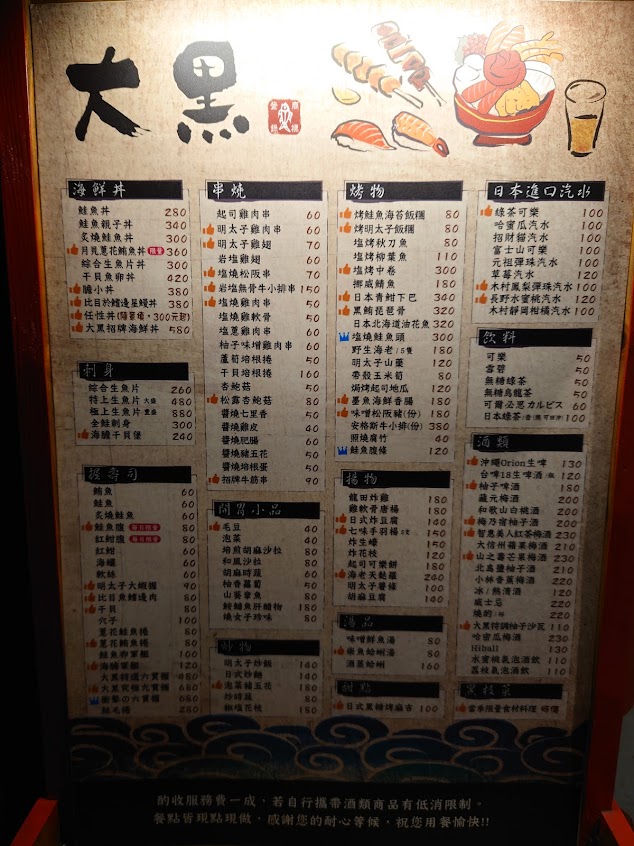 大黑
海鮮丼
鮭魚丼 280
鮭魚親子丼 340
炙燒鮭魚丼 300
月見蔥花鮪魚丼 限量 360
綜合生魚片丼 300
干貝魚卵丼 420
膽小丼 380
比目於鰭邊星鰻丼 380
任性丼(隨賣場,300元起)
大黑招牌海鮮丼 580
刺身
綜合生魚片 260
特上生魚片 大盛 480
極上生魚片 豊盛 880
全鮭刺身 300
海膽干貝堡 240
握壽司
鮪魚 60
鮭魚 60
炙燒鮭魚 60
鮭魚腹 每日限量 80
紅魽腹 每日限量 80
紅魽 60
海鱺 60
軟絲 60
明太子大蝦握 90
比目魚鰭邊肉 80
干貝 80
穴子 100
蔥花鮭魚捲 80
蔥花鮪魚捲 80
鮭魚卵軍艦 100
海膽軍艦 120
串燒
起司雞肉串 60
明太子雞肉串 60
明太子雞翅 70
岩塩雞翅 60
塩燒松阪串 70
岩塩無骨牛小排串 150
塩燒雞肉串 50
塩燒雞軟骨 50
塩蔥雞肉串 60
柚子味噌雞肉串 60
蘆筍培根捲 50
干貝培根捲 160
杏鮑菇 50
松露杏鮑菇 80
醬燒七里香 50
醬燒雞皮 40
醬燒肥腸 60
醬燒豬五花 50
醬燒培根蛋 50
招牌牛筋串 90
開胃小品
毛豆 40
泡菜 40
焙煎胡麻沙拉 80
和風沙拉 80
胡麻時蔬 60
柚香蘿蔔 50
山藥章魚 80
鮟鱇魚肝醋物 180
燒女子珍味 80
炒物
明太子炒飯 140
日式炒麵 140
泡菜豬五花 150
炒時蔬
椒塩花枝
烤物
烤鮭魚海苔飯糰 80
烤明太子飯糰 80
塩烤秋刀魚 80
塩烤柳葉魚 110
塩烤中卷 300
挪威鯖魚 180
日本青魽下巴 340
黑鮪琵琶骨 320
日本北海道油花魚 320
塩燒鮭魚頭 300
野生海老/5隻 180
明太子山藥 120
帶殼玉米筍 80
焗烤起司地瓜 120
墨魚海鮮香腸 180
味噌松阪豬(份) 180
安格斯牛小排(份) 380
照燒腐竹 40
鮭魚腹條 120
揚物
龍田炸雞 180
雞軟骨唐揚 180
日式炸豆腐 140
七味手羽揚 150
炸生蠔 150
炸花枝 150
起司可樂餅 180
海老天麩羅 240
明太子薯條 100
胡麻豆腐 140
湯品
味噌鮮魚湯 80
柴魚蛤蜊湯 80
酒蒸蛤蜊 160
甜點
日式黑糖烤麻吉 100
日本進口汽水
綠茶可樂 100
哈蜜瓜汽水 100
招財貓汽水 100
富士山可樂 100
元祖彈珠汽水 100
草莓汽水 120
木村鳳梨彈珠汽水 100
長野水蜜桃汽水 120
木村靜岡柑橘汽水 100
飲料
可樂 50
雪碧 50
無糖綠茶 50
無糖烏龍茶 50
可爾必思カルピス 60
日本綠茶 100
酒類
沖繩Orion生啤 130
台啤18生啤酒 120
柚子啤酒 180
藏元梅酒 200
和歌山白桃酒 200
梅乃宿柚子酒 200
智惠美人紅茶梅酒 230
大信州蘋果梅酒 210
山之壽芒果梅酒 230
北島鹽柚子酒 210
小林香蕉梅酒 220
冰/熱清酒 120
威士忌 220
燒酌 220
大黑特調柚子沙瓦 110
哈蜜瓜梅酒 230
Hiball 130
水蜜桃氣泡酒飲 110
荔枝氣泡酒飲 110
黑板菜
當季限量食材料理 時價
酌收服務費一成,若自行攜帶酒類商品有低消限制。
餐點皆現點現做,感謝您的耐心等候,祝您用餐愉快!!